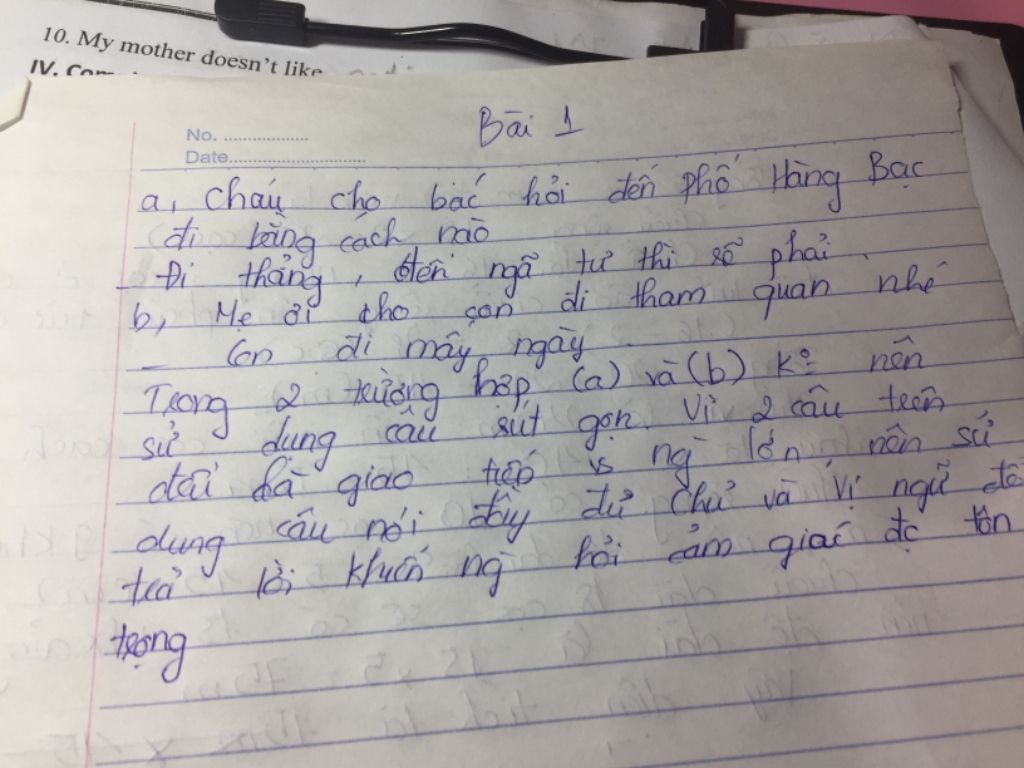 10. My mother doesn't like
IV. Com
No. ..................
Date..............................
Bài 1
a, Cháu cho bác hỏi đến phố Hàng Bạc
đi bằng cách nào
- Đi thẳng, đến ngã tư thì sẽ phải.
b, Mẹ ơi cho con đi tham quan nhé
- Con đi mấy ngày
Trong 2 trường hợp (a) và (b) kº nên
sử dụng câu rút gọn. Vì 2 câu trên
đều đã giao tiếp vs ng lớn nên sử
dụng câu nói đầy đủ chủ và vị ngữ để
trả lời khiến ng hỏi cảm giác đc tôn
trọng